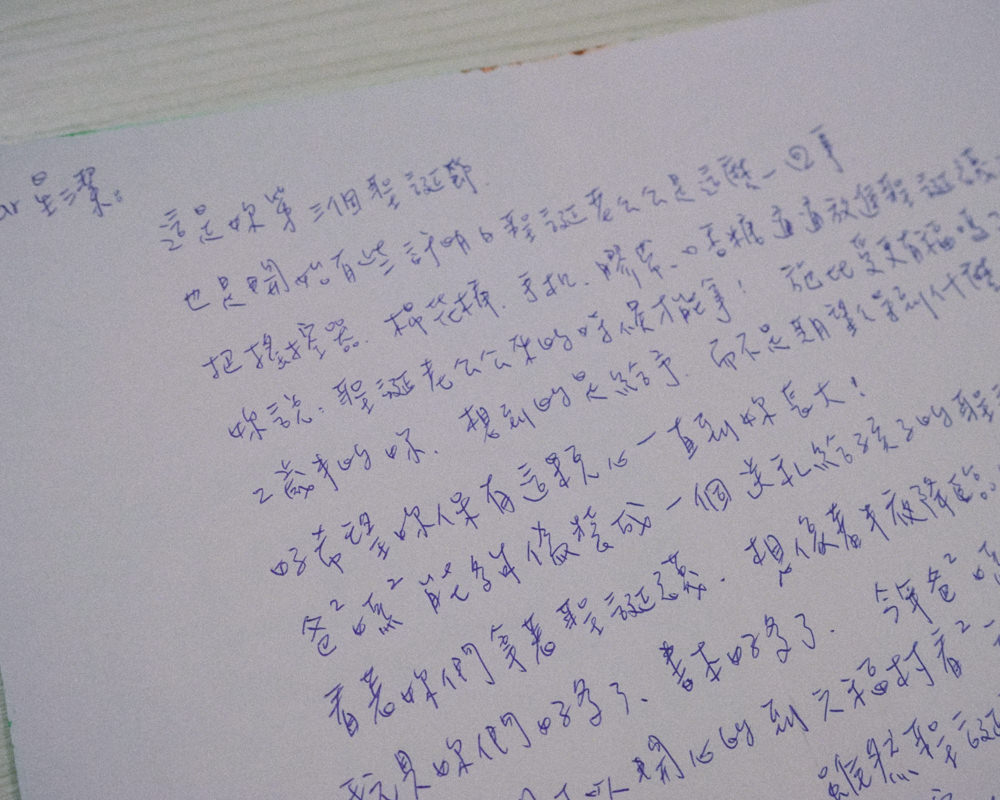 ar 星潔:
這是妳第三個聖誕節.
也是開始有些許明白聖誕老公公是這麼一回事
把搖控器.棉花棒.手机.膠帶.口香糖通通放進聖誕襪
妳說:聖誕老公公來的時候才能拿! 施比受更有福嗎
2歲半的妳.想到的是給予.而不是期望得到什麼
好希望妳保有這顆心一直到妳長大!
爸²媽²能夠偽裝成一個送礼給孩子的聖
看著妳們拿著聖誕襪.想像著半夜降臨
玩具妳們好多了、書本好多了. 今年爸²媽
開心的到天福村看²
雖然聖誕